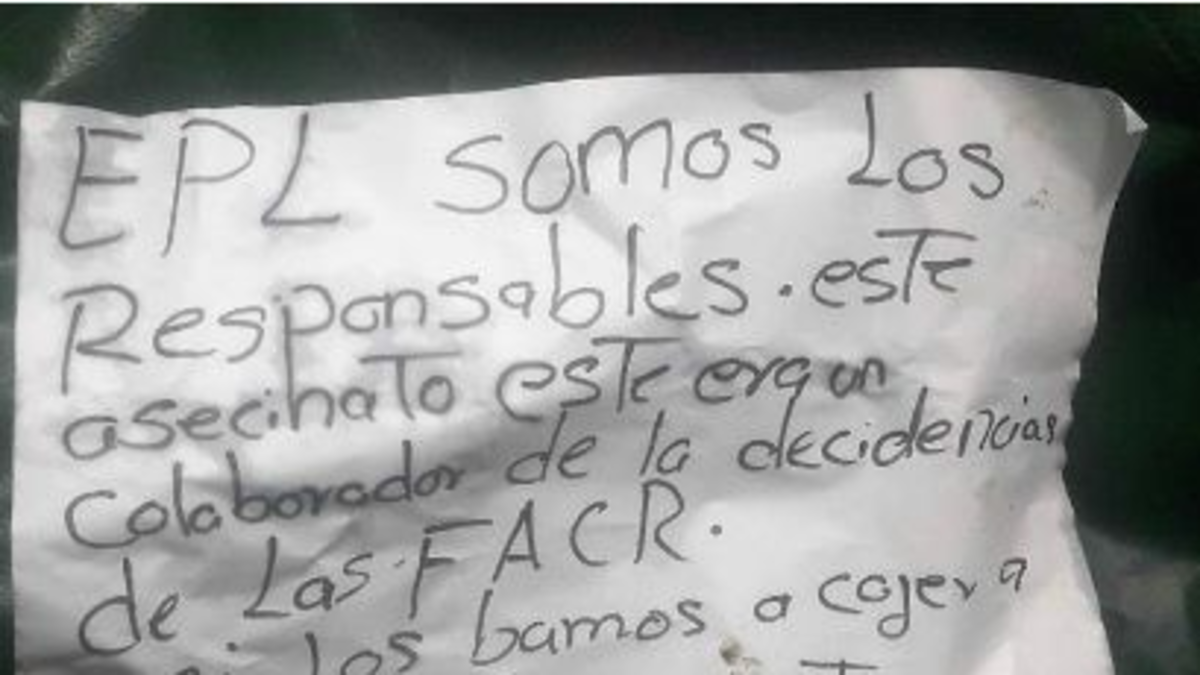 EPL somos Los
Responsables. este
asecinato este era un
colaborador de la decidencias
de Las. FACR.
los bamos a cojer a